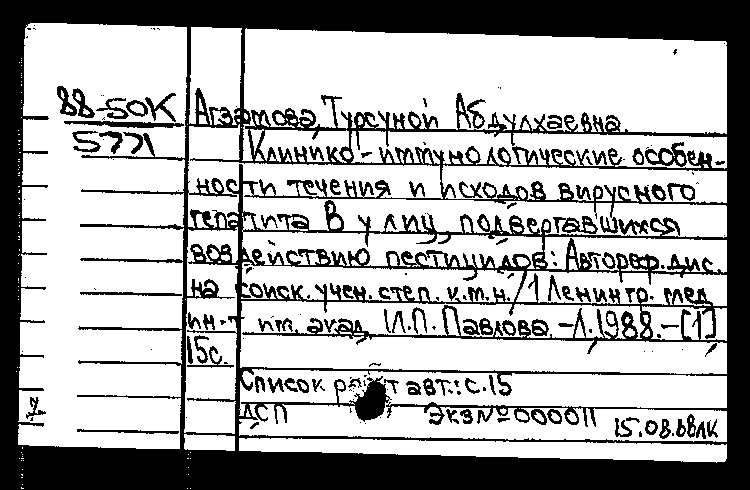 88-50К Агзамова, Турсуной Абдулхаевна.
5771 Клинико-иммунологические особен-
ности течения и исходов вирусного
гепатита В у лиц, подвергавшихся
воздействию пестицидов: Автореф. дис.
на соиск. учен. степ. к.м.н./1 Ленингр. мед
ин-т им. акад. И.П. Павлова.-Л.1988.-[1]
15с.
Список работ авт.: с.15
ДСП Экз№000011 15.08.88ЛК